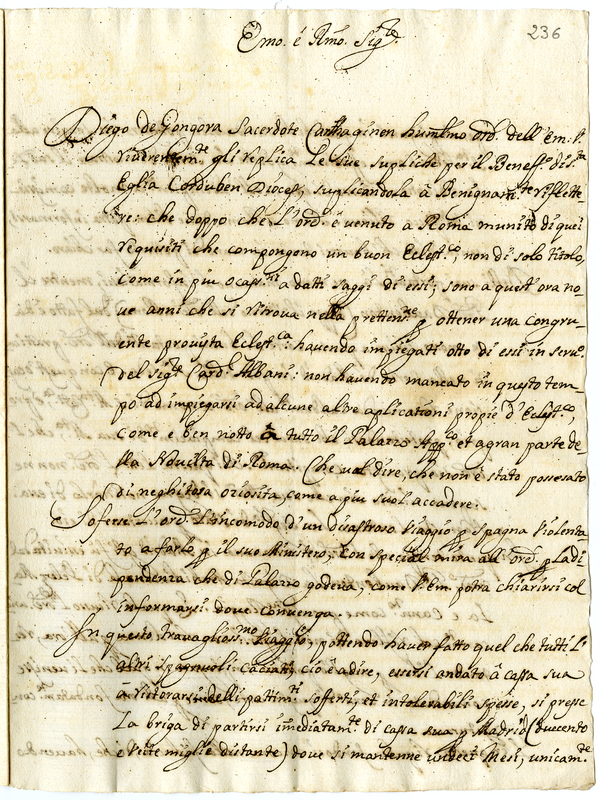 236
Emo. é Rmo. Sig.re
Diego de Gongora Sacerdote Carthaginen humilmo ord. dell' Em: V.
riverentem.te gli replica le sue supliche per il Benef.o di S.ta
Eglia Corduben Dioces, suplicandola à Benignam.te riflette
re: che doppo che L'ord. è venuto a Roma munito di quei
requisiti che compongono un buon Eclest.co, non di solo titolo,
come in piu ocas.ni a datti saggi di essi; sono a quest'ora no-
ve anni che si ritrova nella prettens.ne p ottener una congru-
ente provista Eclest.ca: havendo impiegati otto di essi in serv.o
del Sig.re Card. Albani: non havendo mancato in questo tem-
po ad impiegarsi ad alcune altre aplicationi propie d'Eclest.co,
come è ben notto à tutto il Palazzo App.co et a gran parte de-
lla Novilta di Roma. Che val dire, che non è stato possesato
di neghitosa oziosita come a piu suol accadere.
Soferse L'ord. L'incomodo d'un disastroso Viaggio p Spagna violenta
to a farlo p il suo Ministero; con special mira all'ord. p La di
pendenza che di Palazzo godeva, come V. Em. potra chiarirsi col
informarsi dove convenga.
In questo travaglios.mo Viaggio, pottendo haver fatto quel che tutti L'
altri Spagnuoli Caciati, ciò è a dire, essersi andato à cassa sua
a ristorarsi delli pattim.ti sofferti, et intolerabili spesse, si presse
La briga di partirsi imediatam.te di cassa sua p Madrid (duecento
e veitte miglie distante) dove si mantenne undeci Mesi, unicam.te